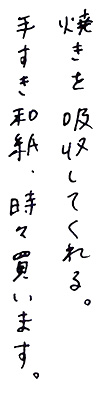 焼きを吸収してくれる。
手すき和紙、時々買います。